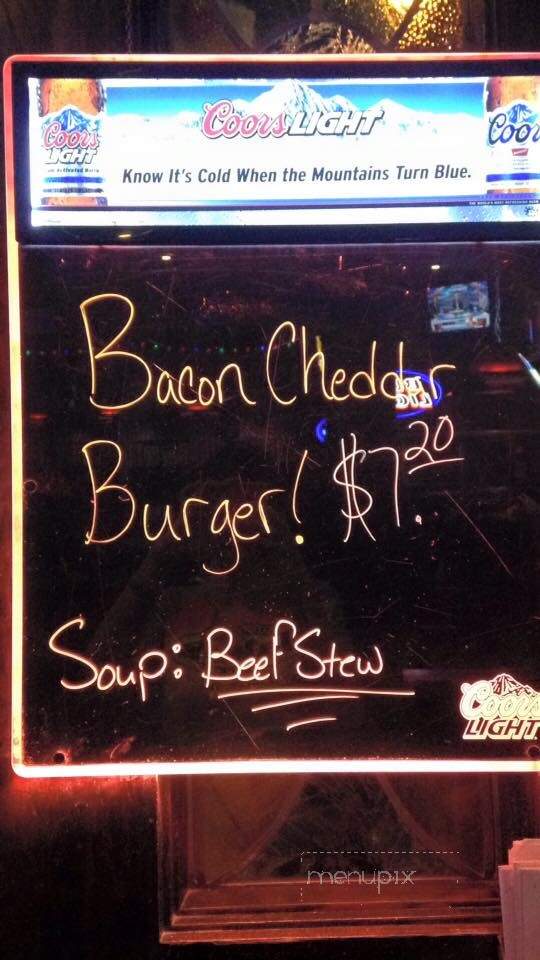 Coors LIGHT
Coors LIGHT
Coors
Know It's Cold When the Mountains Turn Blue.
Bacon Cheddar
Burger! $7.20
Soup: Beef Stew
Coors LIGHT
menupix